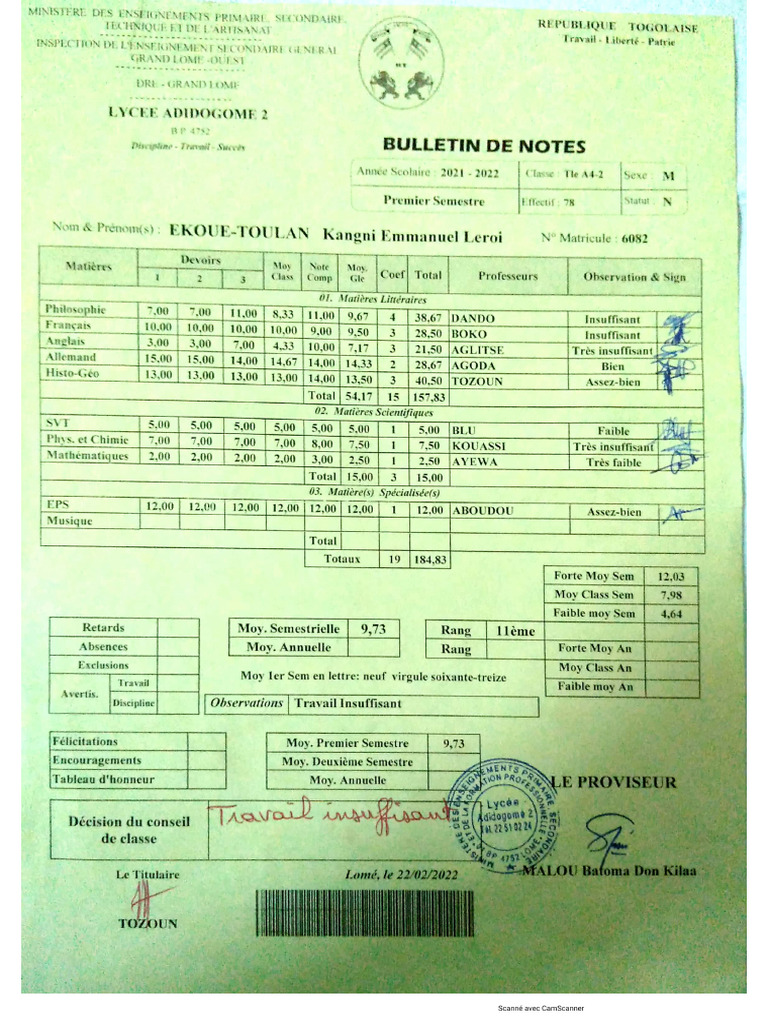 MINISTERE DES ENSEIGNEMENTS PRIMAIRE, SECONDAIRE,
TECHNIQUE ET DE L'ARTISANAT
INSPECTION DE L'ENSEIGNEMENT SECONDAIRE GENERAL
GRAND LOME -OUEST
DRE - GRAND LOME
LYCEE ADIDOGOME 2
B P 4752
Discipline - Travail - Succès
REPUBLIQUE TOGOLAISE
Travail - Liberté - Patrie
BULLETIN DE NOTES
Année Scolaire : 2021 - 2022 Classe : Tle A4-2 Sexe : M
Premier Semestre Effectif : 78 Statut : N
Nom & Prénom(s) : EKOUE-TOULAN Kangni Emmanuel Leroi N° Matricule : 6082
Matières Devoirs 1 2 3 Moy Class Note Comp Moy. Gle Coef Total Professeurs Observation & Sign
01. Matières Littéraires
Philosophie 7,00 7,00 11,00 8,33 11,00 9,67 4 38,67 DANDO Insuffisant
Français 10,00 10,00 10,00 10,00 9,00 9,50 3 28,50 BOKO Insuffisant
Anglais 3,00 3,00 7,00 4,33 10,00 7,17 3 21,50 AGLITSE Très insuffisant
Allemand 15,00 15,00 14,00 14,67 14,00 14,33 2 28,67 AGODA Bien
Histo-Géo 13,00 13,00 13,00 13,00 14,00 13,50 3 40,50 TOZOUN Assez-bien
Total 54,17 15 157,83
02. Matières Scientifiques
SVT 5,00 5,00 5,00 5,00 5,00 5,00 1 5,00 BLU Faible
Phys. et Chimie 7,00 7,00 7,00 7,00 8,00 7,50 1 7,50 KOUASSI Très insuffisant
Mathématiques 2,00 2,00 2,00 2,00 3,00 2,50 1 2,50 AYEWA Très faible
Total 15,00 3 15,00
03. Matière(s) Spécialisée(s)
EPS 12,00 12,00 12,00 12,00 12,00 12,00 1 12,00 ABOUDOU Assez-bien
Musique
Total
Totaux 19 184,83
Forte Moy Sem 12,03
Moy Class Sem 7,98
Faible moy Sem 4,64
Forte Moy An
Moy Class An
Faible moy An
Retards
Absences
Exclusions
Avertis. Travail
Discipline
Moy. Semestrielle 9,73 Rang 11ème
Moy. Annuelle Rang
Moy 1er Sem en lettre: neuf virgule soixante-treize
Observations Travail Insuffisant
Félicitations
Encouragements
Tableau d'honneur
Moy. Premier Semestre 9,73
Moy. Deuxième Semestre
Moy. Annuelle
Décision du conseil
de classe
Travail insuffisant
MINISTERE DES ENSEIGNEMENTS PRIMAIRE, SECONDAIRE
ET DE LA FORMATION PROFESSIONNELLE
Lycée
Adidogome 2
Tél. 22 51 02 24
BP 4752 LOME
LE PROVISEUR
MALOU Batoma Don Kilaa
Le Titulaire
TOZOUN
Lomé, le 22/02/2022
Scanné avec CamScanner